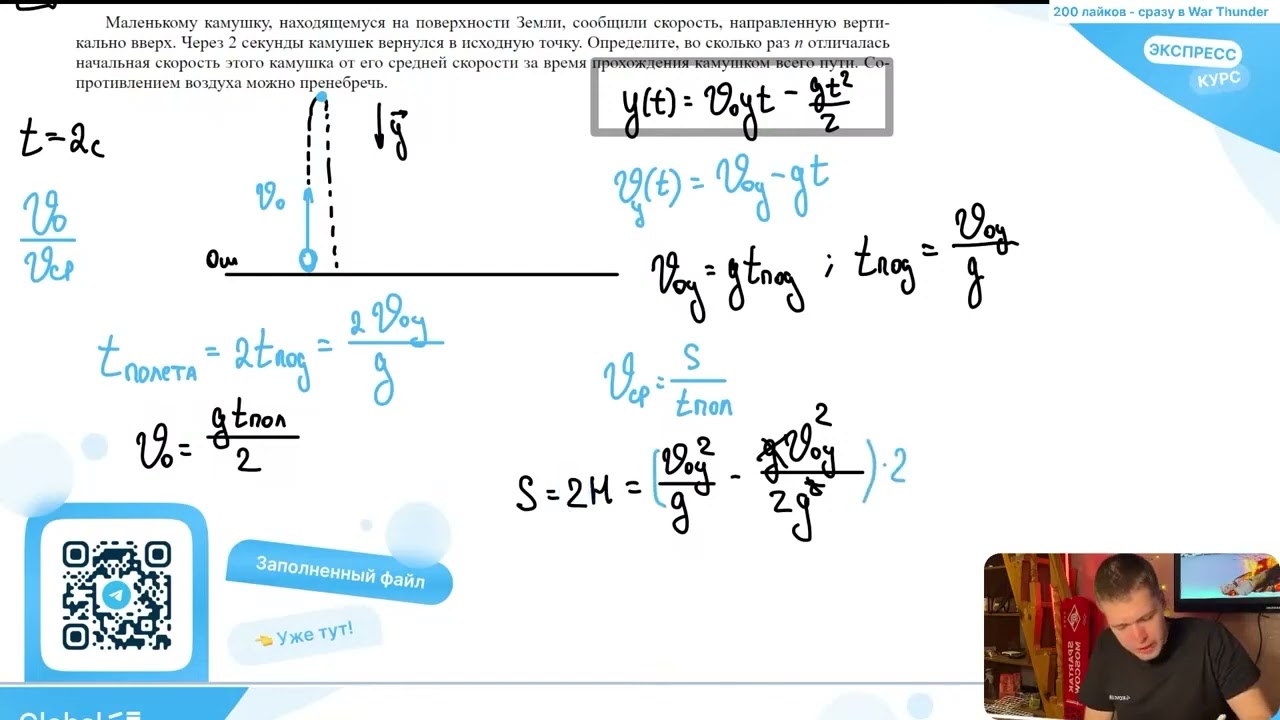 200 лайков - сразу в War Thunder
Маленькому камушку, находящемуся на поверхности Земли, сообщили скорость, направленную верти-
кально вверх. Через 2 секунды камушек вернулся в исходную точку. Определите, во сколько раз n отличалась
начальная скорость этого камушка от его средней скорости за время прохождения камушком всего пути. Со-
противлением воздуха можно пренебречь.
ЭКСПРЕСС
КУРС
y(t) = v₀yt - gt²/2
t = 2c
g⃗
v_y(t) = v₀y - gt
v₀/vср
v₀
0м
v₀y = gtпод ; tпод = v₀y/g
tполета = 2tпод = 2v₀y/g
vср = S/tпол
v₀ = gtпол/2
S = 2H = (v₀y²/g - gv₀y²/2g²)·2
Заполненный файл
👈 Уже тут!
SPARTAK
MOSCOW